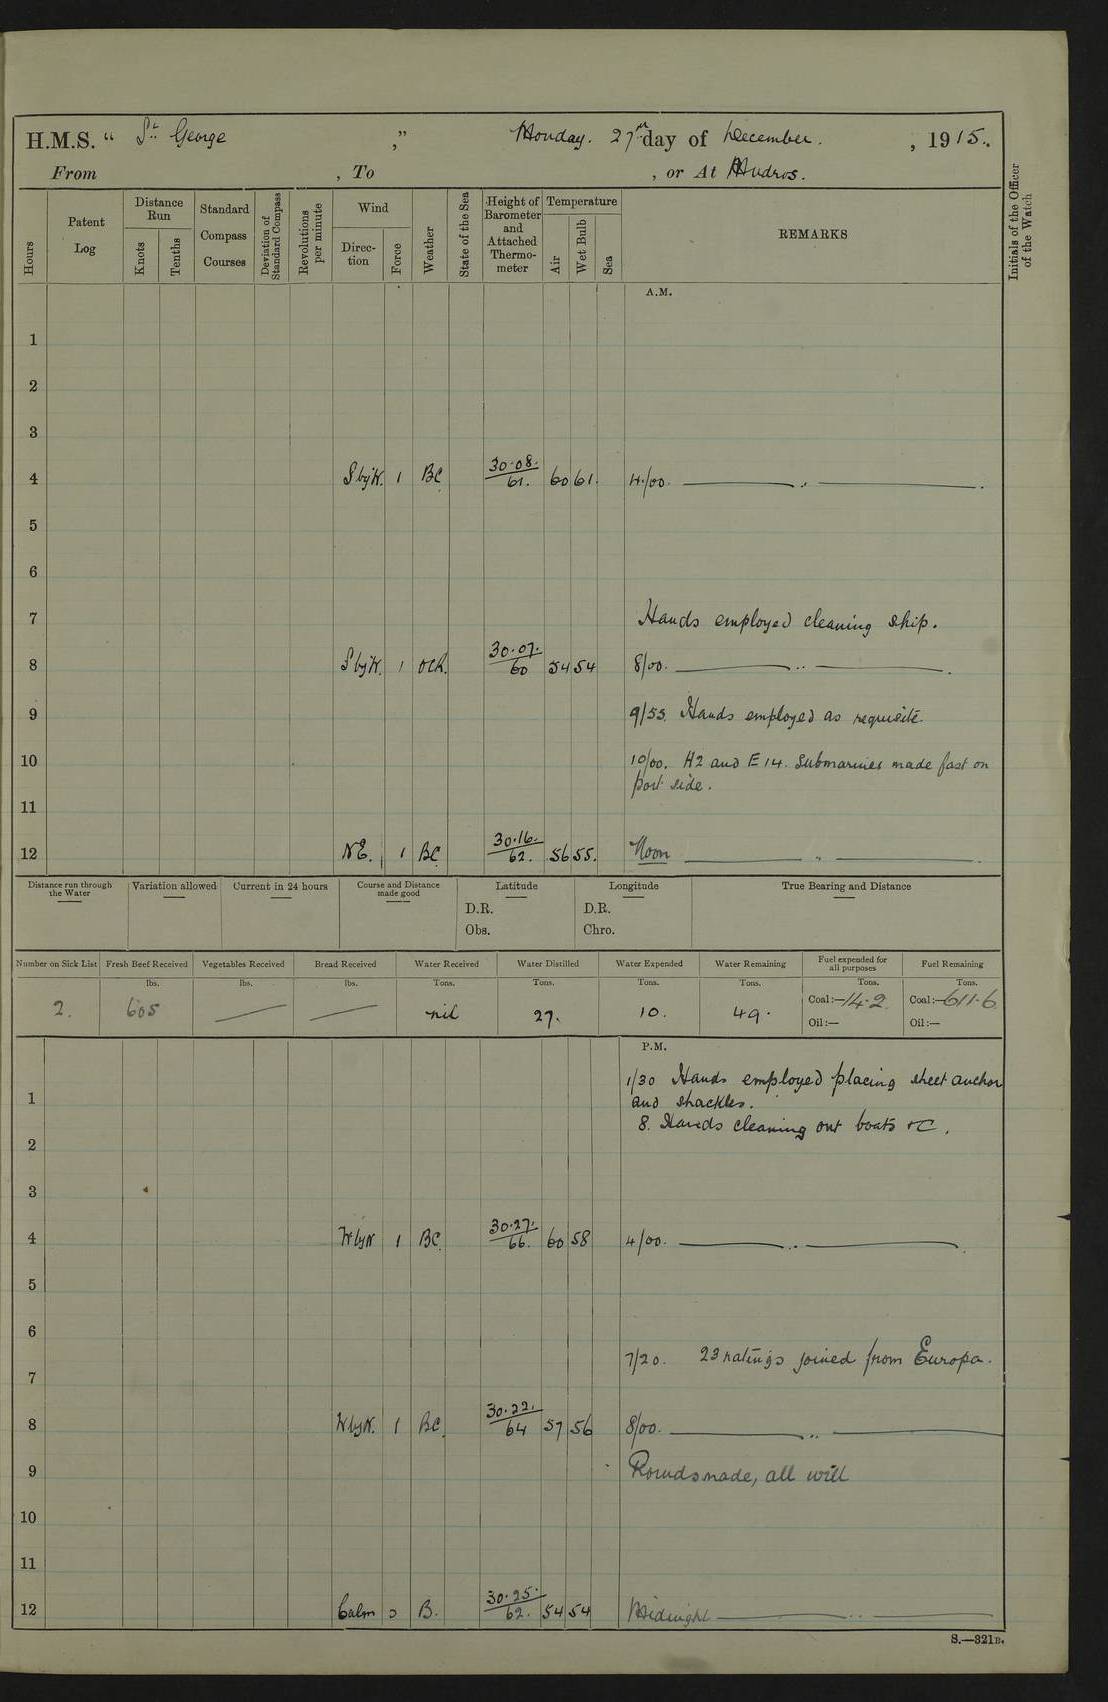 H.M.S. " St George " Monday. 27th day of December. , 1915.
From , To , or At Mudros.
Hours
Patent Log
Distance Run
Knots
Tenths
Standard Compass Courses
Deviation of Standard Compass
Revolutions per minute
Wind
Direction
Force
Weather
State of the Sea
Height of Barometer and Attached Thermometer
Temperature
Air
Wet Bulb
Sea
REMARKS
Initials of the Officer of the Watch
A.M.
1
2
3
4 S by W. 1 BC 30.08. 61. 60 61. 4/00. ——— „ ———
5
6
7 Hands employed cleaning ship.
8 S by W. 1 OCR. 30.07. 60 54 54 8/00. ——— „ ———
9 9/55. Hands employed as requisite.
10 10/00. H2 and E14. Submarines made fast on
port side.
11
12 NE. 1 BC 30.16. 62. 56 55. Noon ——— „ ———
Distance run through the Water
Variation allowed
Current in 24 hours
Course and Distance made good
Latitude
D.R.
Obs.
Longitude
D.R.
Chro.
True Bearing and Distance
Number on Sick List
Fresh Beef Received
Vegetables Received
Bread Received
Water Received
Water Distilled
Water Expended
Water Remaining
Fuel expended for all purposes
Fuel Remaining
lbs. lbs. lbs. Tons. Tons. Tons. Tons. Tons. Tons.
2. 605 — — nil 27. 10. 49. Coal:—14.2 Coal:—611.6
Oil:— Oil:—
P.M.
1/30 Hands employed placing sheet anchor
1 and shackles.
8. Hands cleaning out boats &C.
2
3
4 W by N 1 BC. 30.27. 66. 60 58 4/00. ——— „ ———
5
6
7/20. 23 ratings joined from Europa.
7
8 W by N. 1 BC. 30.22. 64 57 56 8/00. ——— „ ———
9 Rounds made, all well
10
11
12 Calm 0 B. 30.25. 62. 54 54 Midnight ——— „ ———
S.—321B.